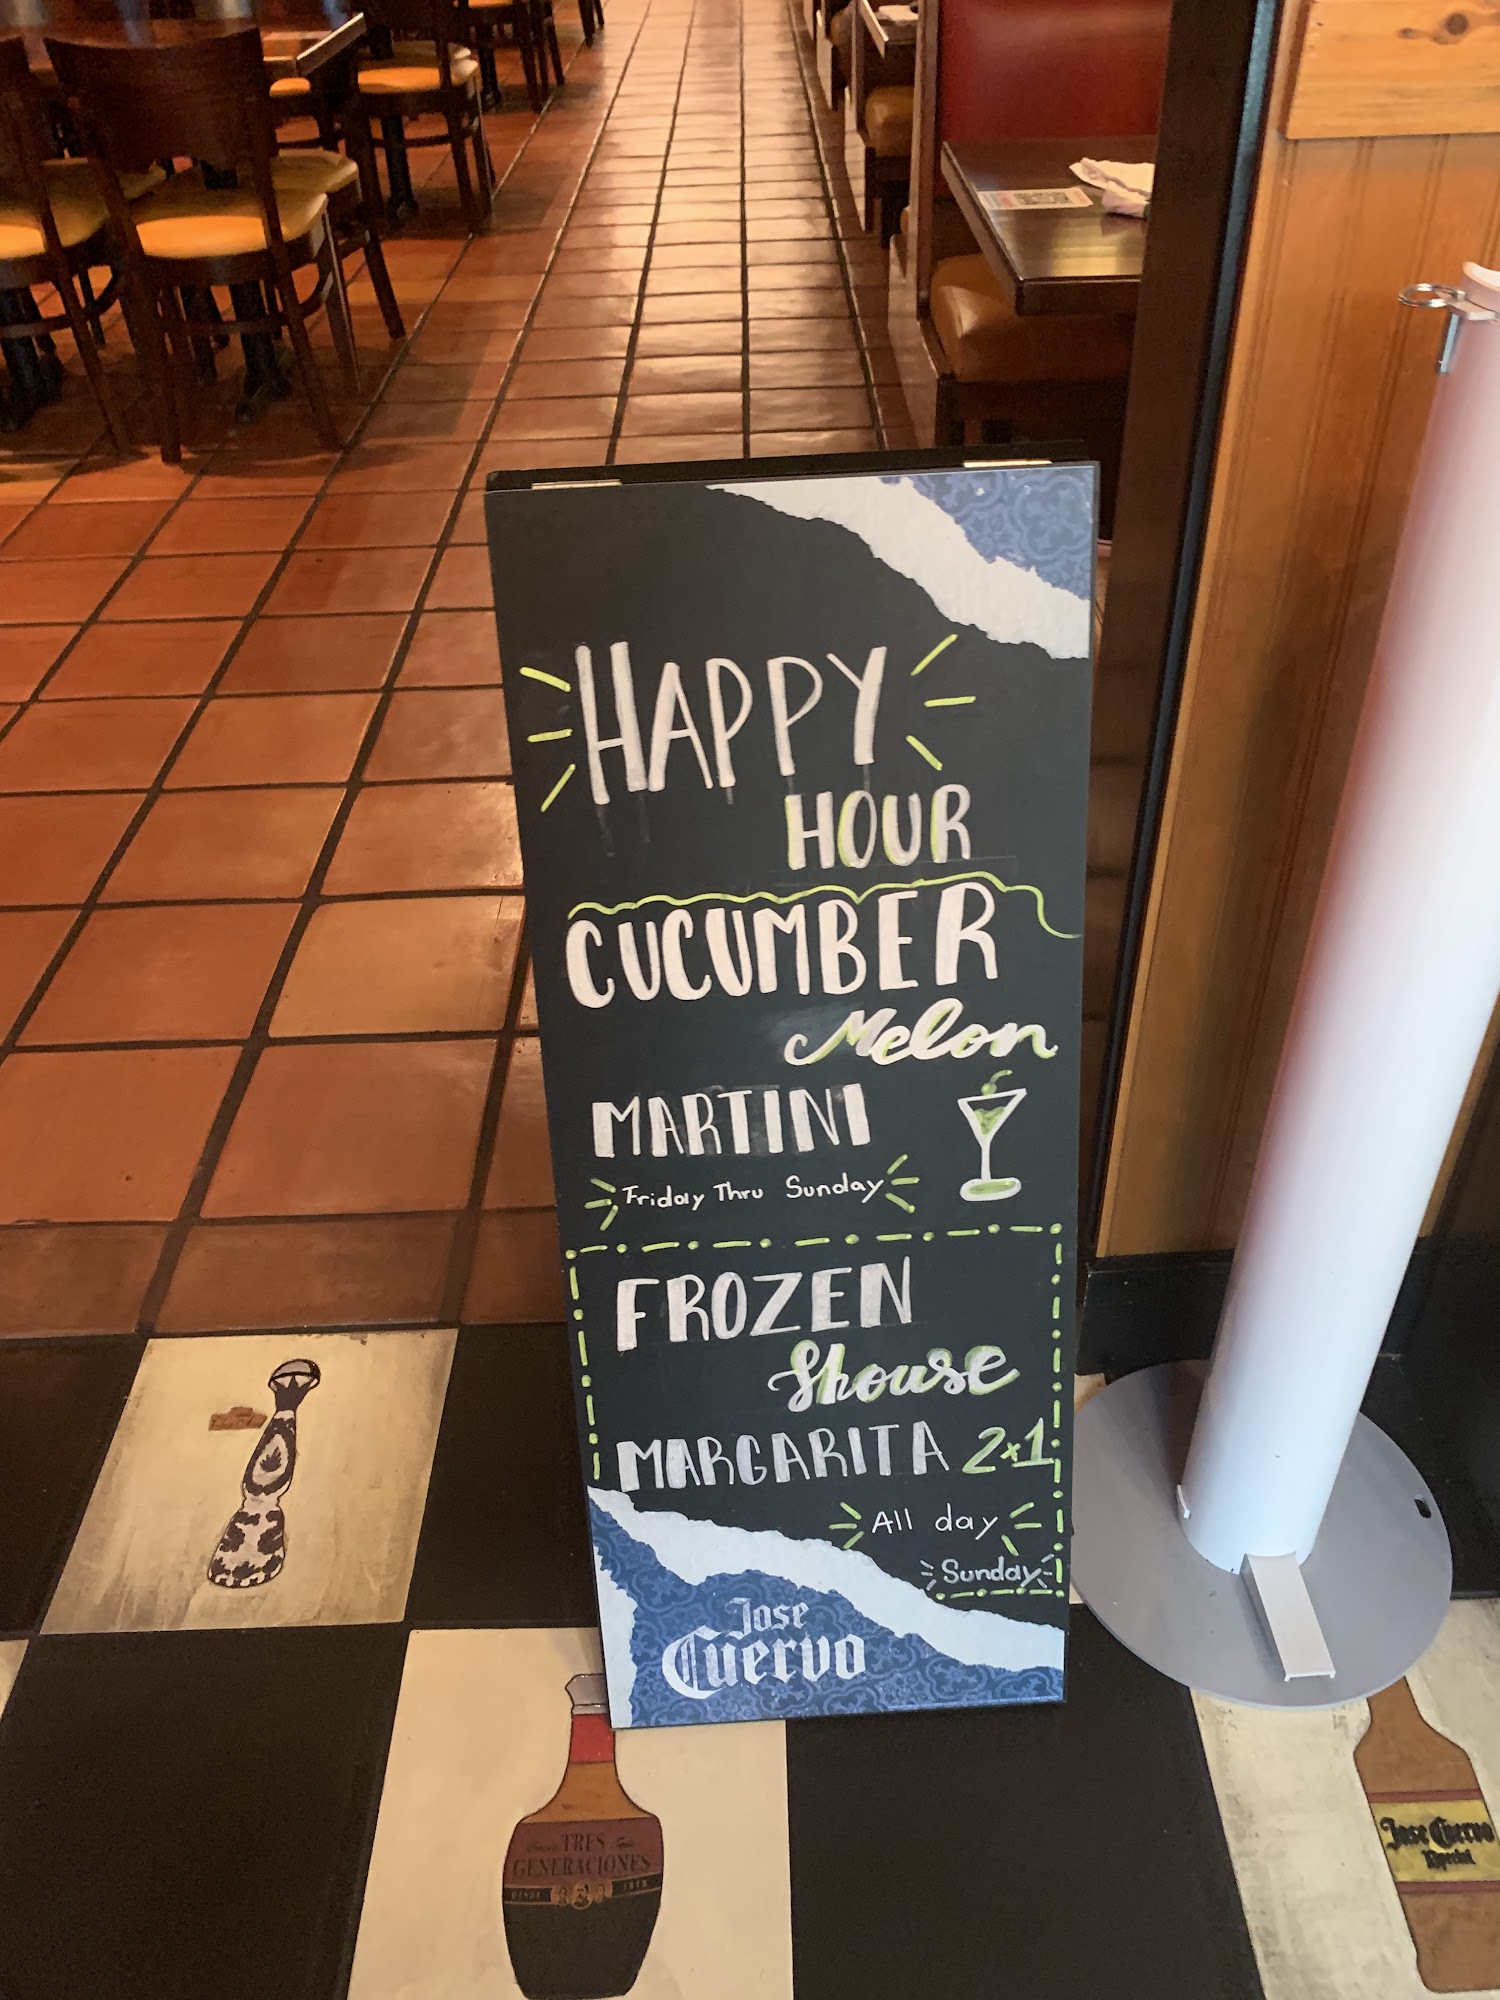 HAPPY
HOUR
CUCUMBER
Melon
MARTINI
Friday Thru Sunday
FROZEN
Shouse
MARGARITA 2x1
All day
Sunday
Jose
Cuervo
TRES
GENERACIONES
DESDE 1873
Jose Cuervo
Especial